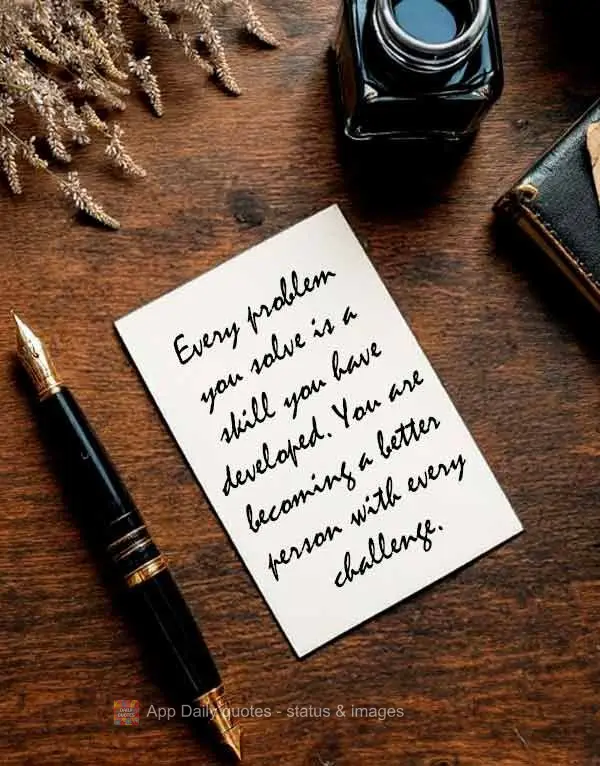 Every problem
you solve is a
skill you have
developed. You are
becoming a better
person with every
challenge.
DAILY
QUOTES
App Daily quotes - status & images